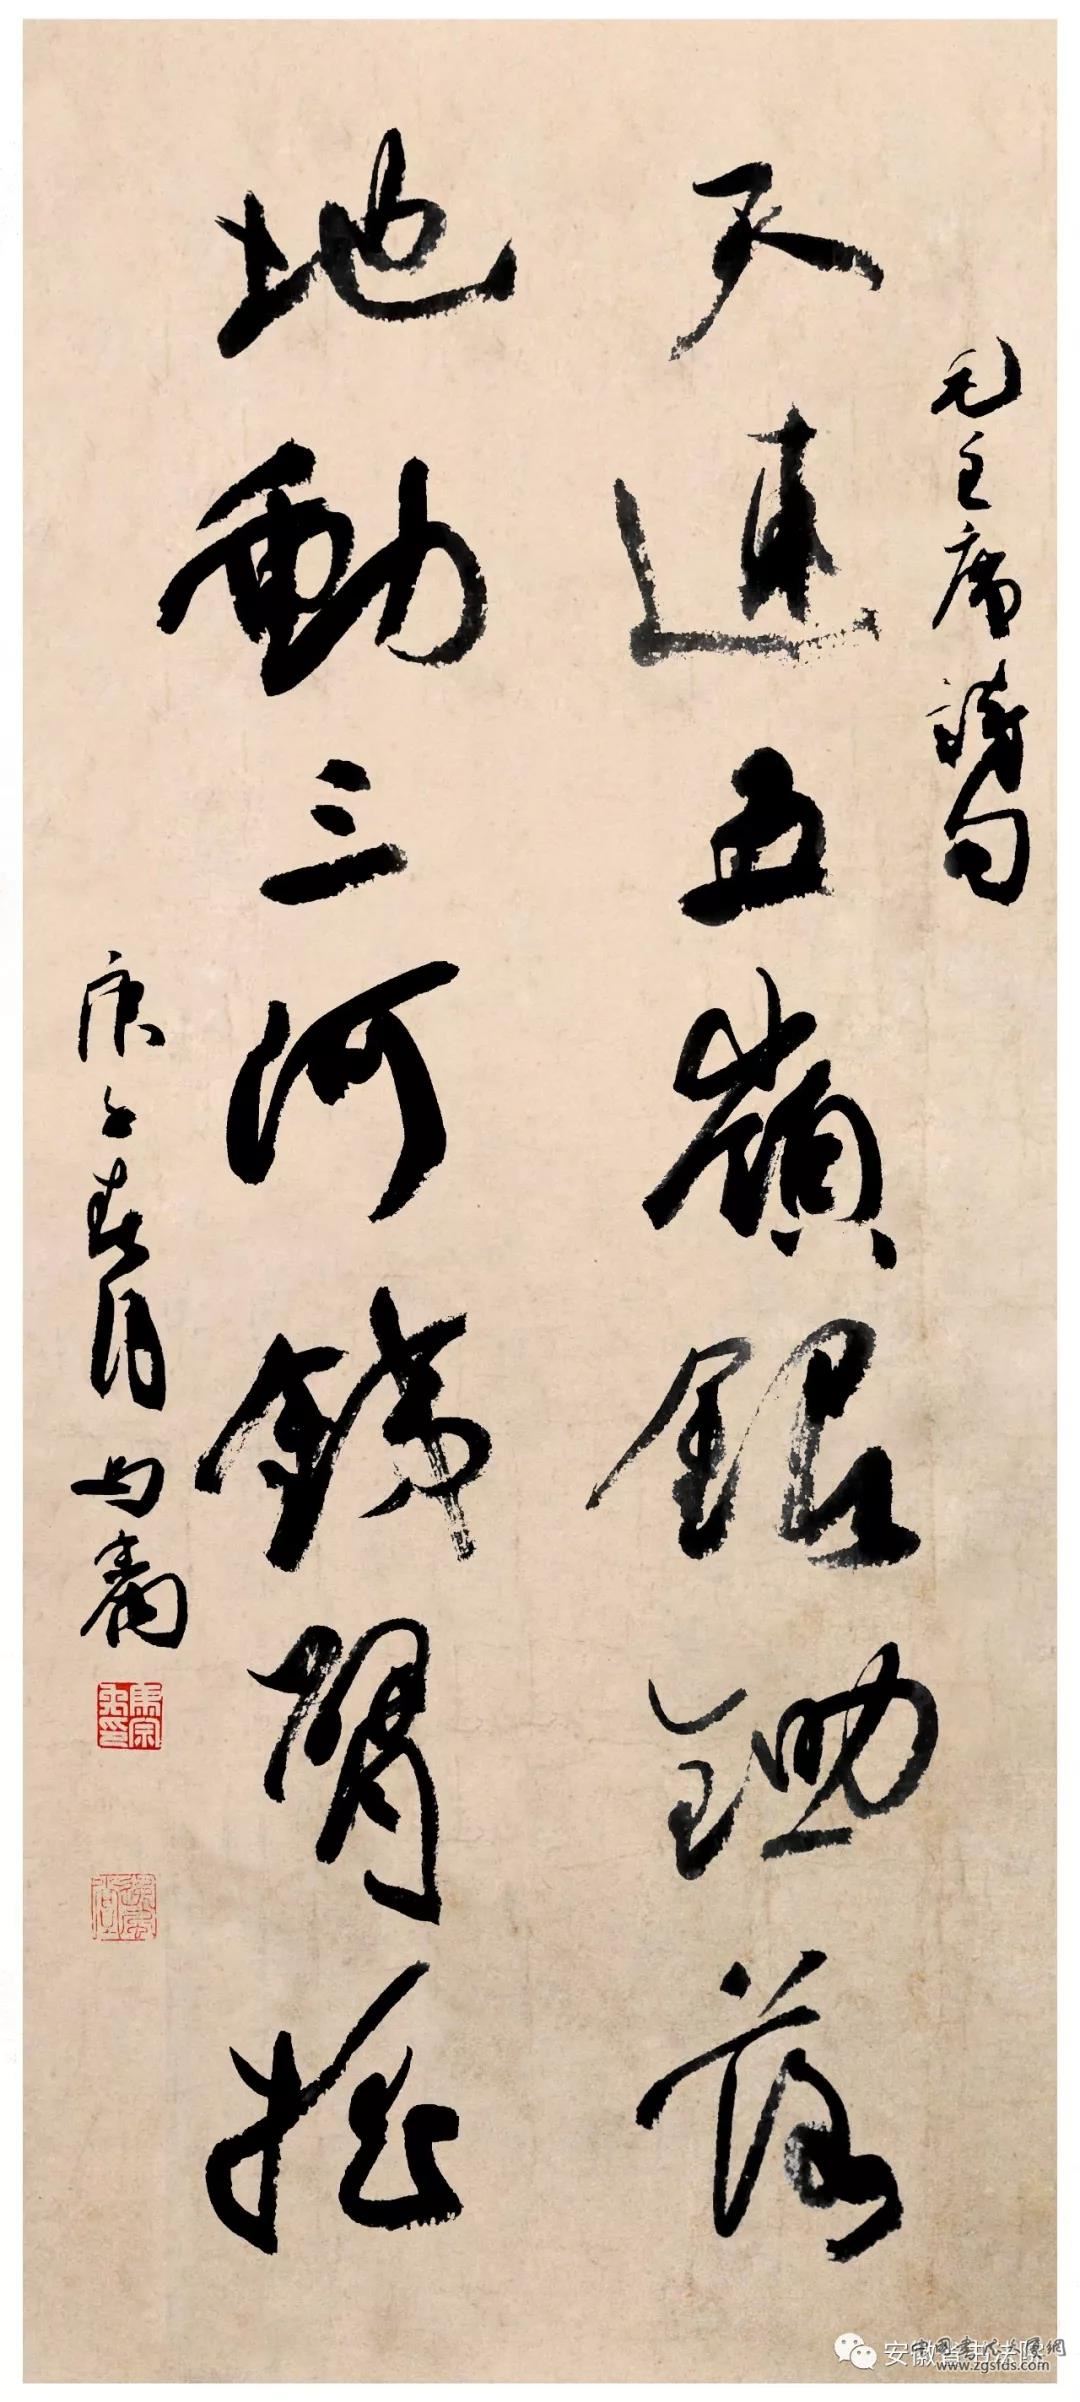 毛主席詩句
天連五嶺銀鋤落
地動三河鐵臂搖
庚子春月
安徽省书法院
www.zgsfds.com